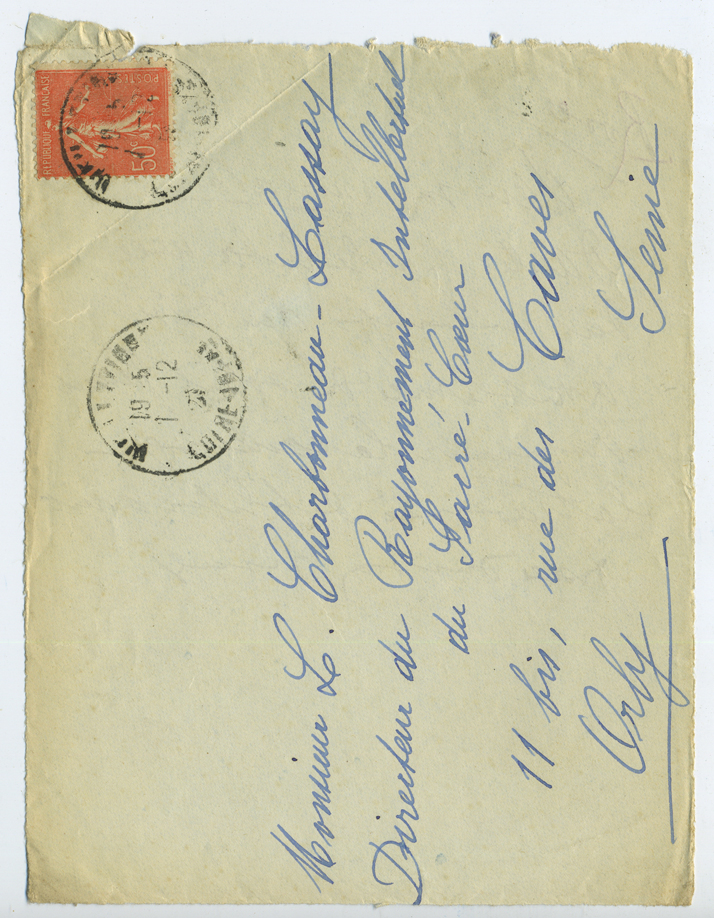 REPUBLIQUE FRANÇAISE
POSTES
50c
19 35
1 -12
31
Monsieur L. Charbonneau-Lassay
Directeur du Rayonnement Intellectuel
du Sacré-Cœur
11 bis, rue des Caves
Orly Seine